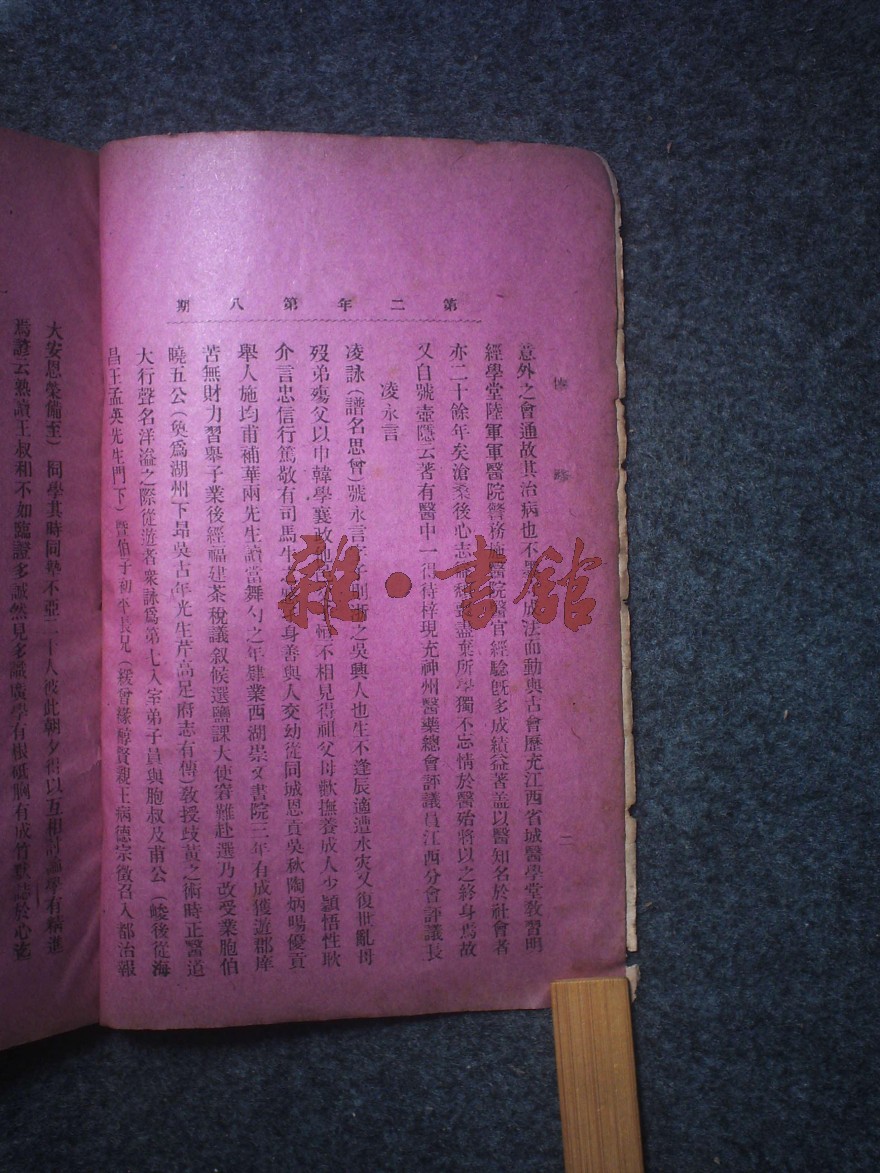 第二年第八期
傳
二
意外之會通故其治病也不成法而動與古會歷充江西省城醫學堂教習明
經學堂陸軍軍醫院警務施醫院醫官經驗既多成績益著蓋以醫知名於社會者
亦二十餘年矣滄桑後心志盡棄所學獨不忘情於醫殆將以之終身焉故
又自號壺隱云著有醫中一得待梓現充神州醫藥總會評議員江西分會評議長
凌永言
凌詠(譜名思曾)號永言浙之吳興人也生不逢辰適遭水災又復世亂母
歿弟殤父以申韓學襄政他不相見得祖父母歡撫養成人少穎悟性耿
介言忠信行篤敬有司馬牛身善與人交幼從同城恩貢吳秋陶炳暘優貢
舉人施均甫補華兩先生讀當舞勺之年肄業西湖崇文書院三年有成獲遊郡庠
苦無財力習舉子業後經福建茶稅議敘候選鹽課大使窘難赴選乃改受業胞伯
曉五公(奐爲湖州下昂吳古年先生芹高足府志有傳)敎授歧黃之術時正醫道
大行聲名洋溢之際從遊者衆詠爲第七入室弟子員與胞叔及甫公(峻後從海
昌王孟英先生門下)暨伯子初平長兄(綬曾緣醇賢親王病德宗徵召入都治報
大安恩榮備至)同學其時同塾不亞二十人彼此朝夕得以互相討論學有精進
焉諺云熟讀王叔和不如臨證多誠然見多識廣學有根砥胸有成竹默誌於心
雜·書館